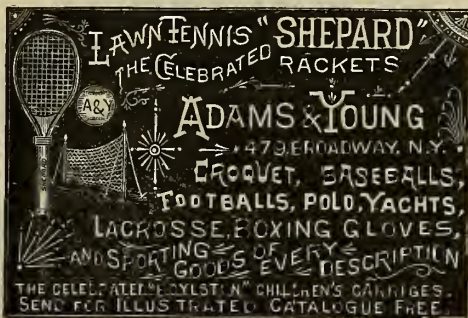 LAWN TENNIS "SHEPARD"
THE CELEBRATED RACKETS
A&Y
ADAMS & YOUNG
479 BROADWAY, N.Y.
CROQUET, BASEBALLS,
FOOTBALLS, POLO, YACHTS,
LACROSSE, BOXING GLOVES,
AND SPORTING GOODS OF EVERY DESCRIPTION
THE CELEBRATED "BOYLSTON" CHILDREN'S CARRIGES.
SEND FOR ILLUSTRATED CATALOGUE FREE.